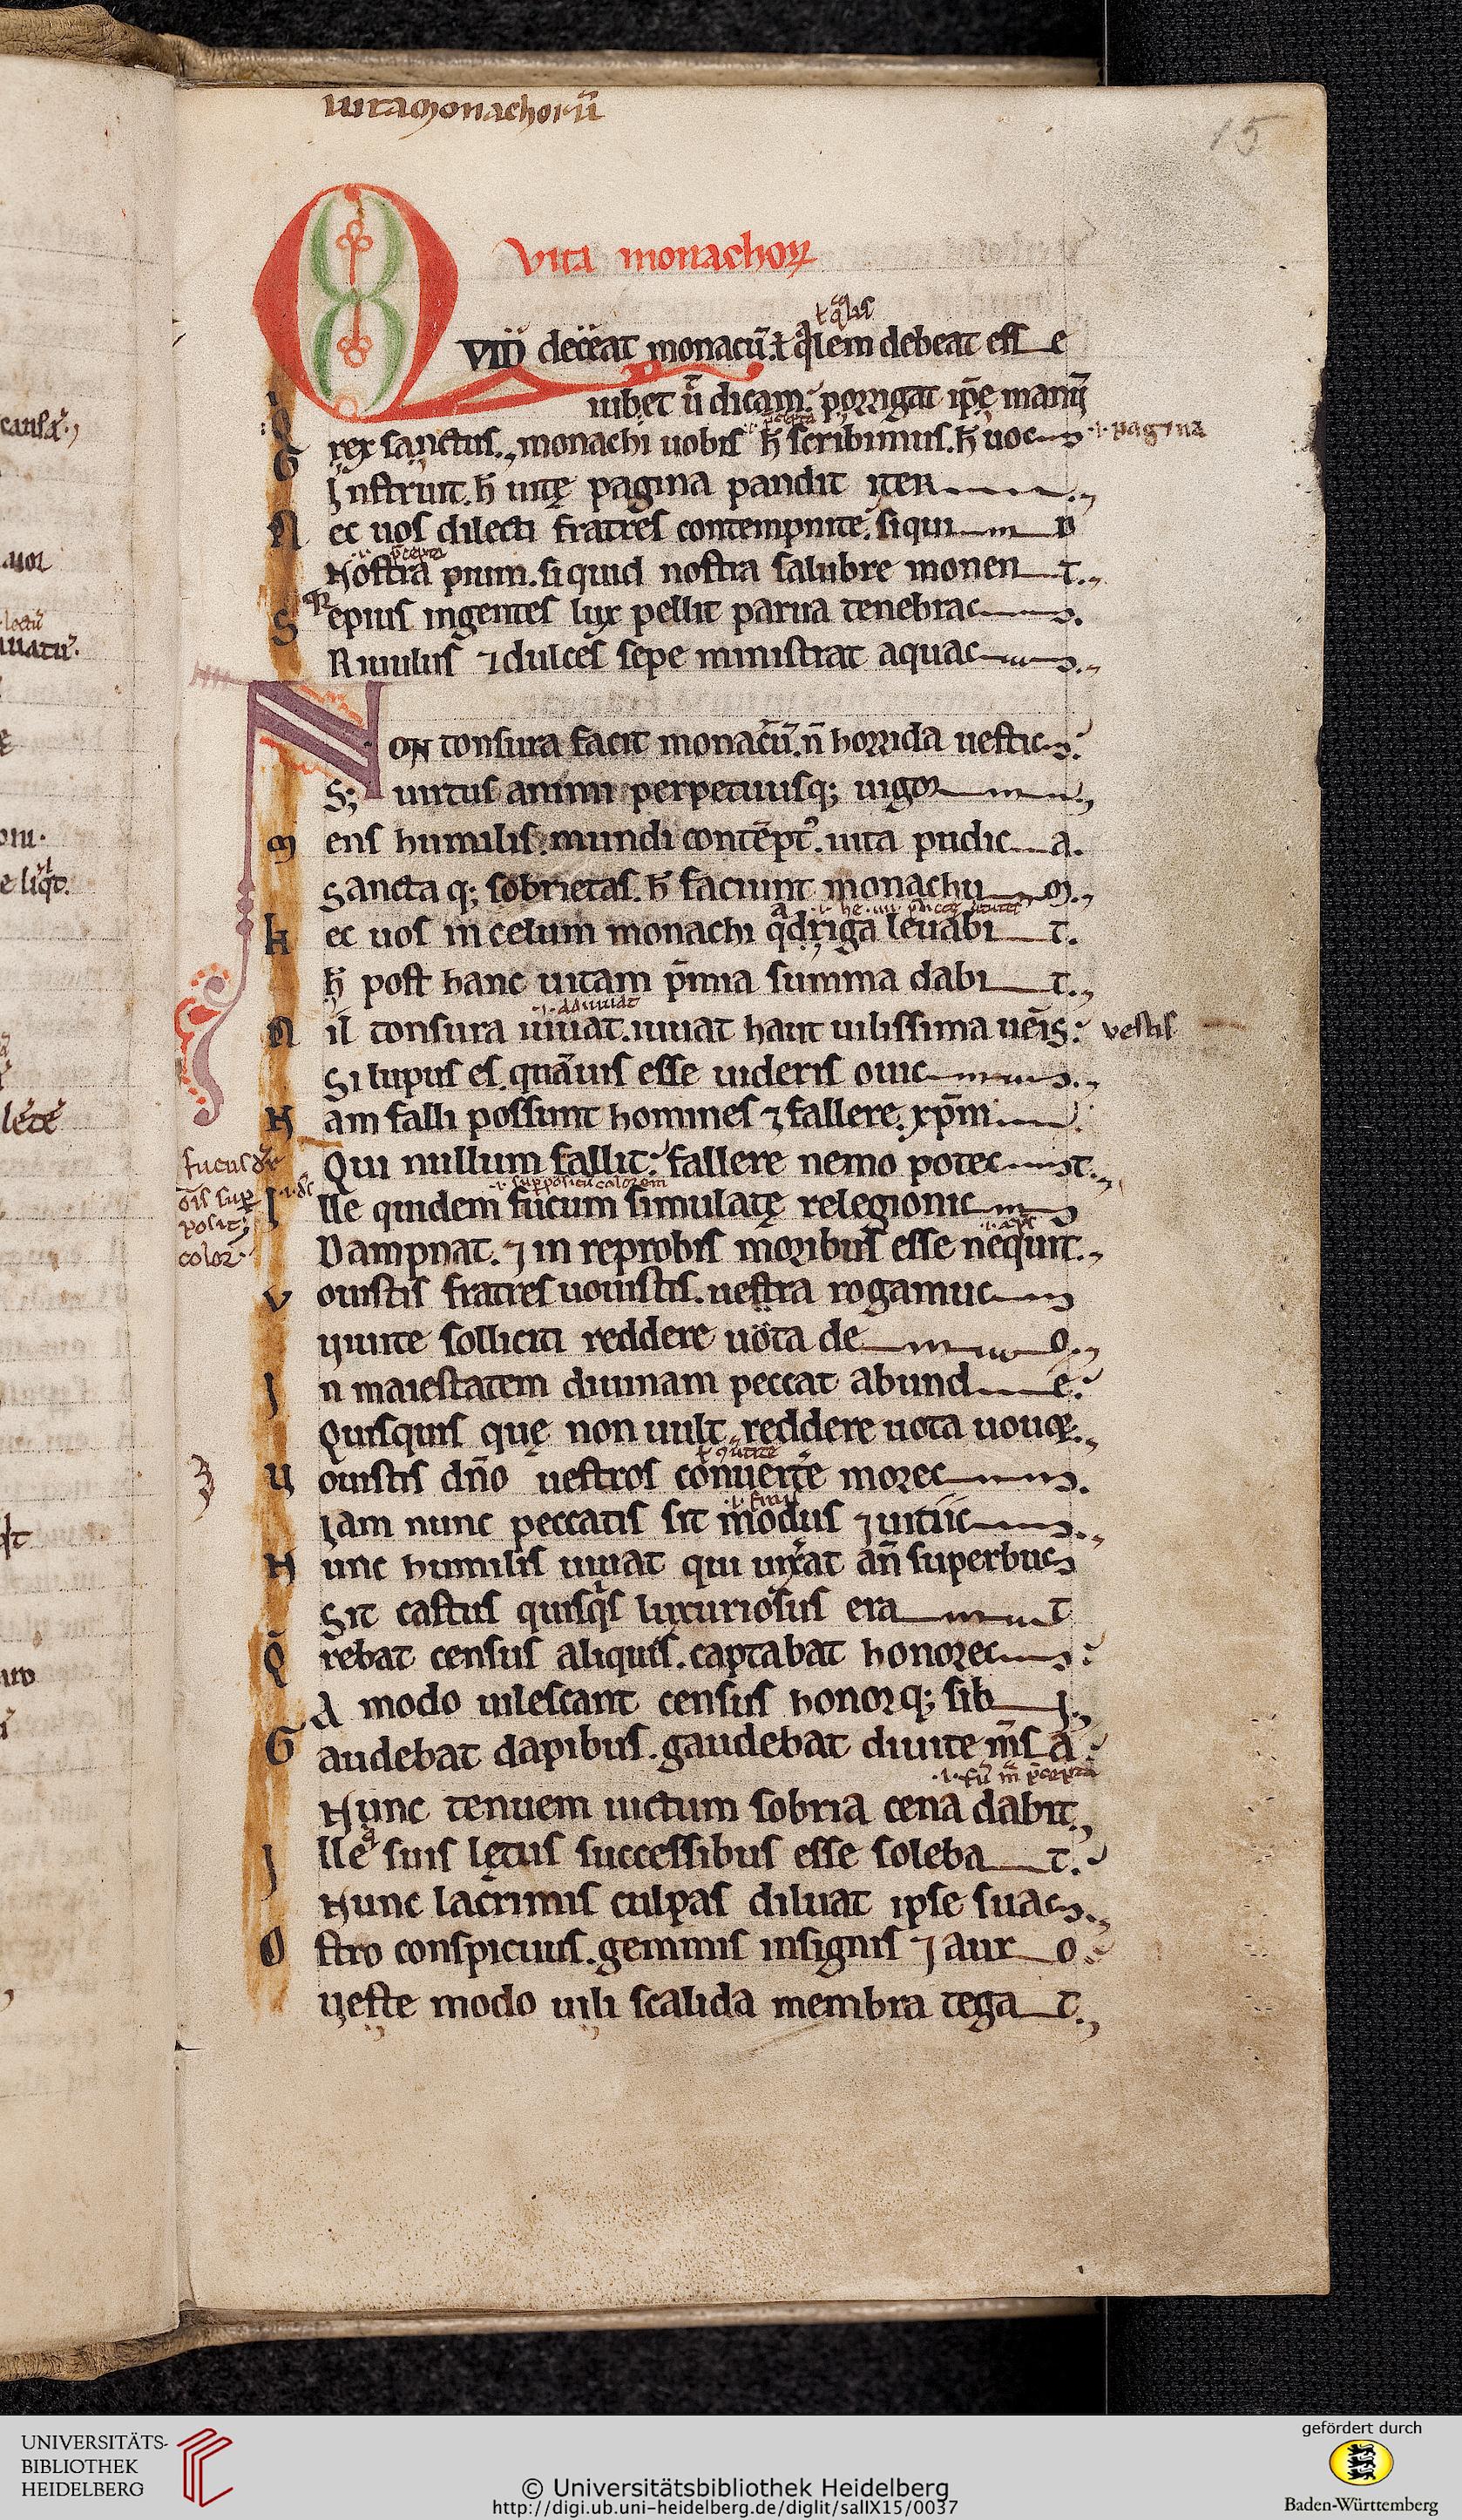 uita monachorũ
15
Vita monachoꝝ
ł qͣlis
QVID deceat monacũ. ł qͣlem debeat esse
Q iubet ũ dicam: porrigat ip̃e manũ
.i. p̃cepta
Grex sanctus., monachi uobis h̄ scribimus. h̄ uos .i. pagina
Instruit. h̄ uitę pagina pandit iter.,
Nec uos dilecti fratres contempnite. siquid
.i. p̃cepta
Nostra pium. siquid nostra salubre monent.,
Sepius ingentes lux pellit parua tenebras.
Riuulus ⁊ dulces sepe ministrat aquas.,
Non tonsura facit monacũ. n̄ horrida uestis:
S; uirtus animi perpetuusq; uigor.,
Mens humilis. mundi contẽptꝰ. uita pudica.
Sanctaq; sobrietas. h̄ faciunt monachum.,
Hec uos in celum monachi qͣdriga leuabit.
h̄ post hanc uitam p̃mia summa dabit.,
.i. adiuuat
Nil tonsura iuuat. iuuat haut uilissima uẽis: vestis
Si lupus es. quãuis esse uideris ouis.,
Nam falli possunt homines ⁊ fallere. xp̃m
Qui nullum fallit: fallere nemo potest.,
fucus dr̄
oĩs sup
posit;
color.
.i. ds
.i. suppositũ colorem
Ille quidem fucum simulatę relegionis
Dampnat. ⁊ in reprobis moribus esse nequit.,
Vouistis fratres uouistis. uestra rogamus
uiuite solliciti reddere uota deo.,
In maiestatem diuinam peccat abunde:
Quisquis quę non uult reddere uota uouet.,
Uouistis dño uestros conuertẽ mores.
.i. finis
Iam nunc peccatis sit modus ⁊ uitiis.,
Nunc humilis uiuat qui uixͣat añ superbus
Sit castus quisqͥs luxuriosus erat
Q̃rebat census aliquis. captabat honores:
A modo uilescant census honorq; sibi.,
Gaudebat dapibus. gaudebat diuite m̃sa:
Nunc tenuem uictum sobria cena dabit.,
Ille suis lętus successibus esse solebat.
Nunc lacrimis culpas diluat ipse suas.,
Ostro conspicuus. gemmis insignis ⁊ auro
ueste modo uili scalida membra tegat.,
cansã.,
UNIVERSITÄTS-
BIBLIOTHEK
HEIDELBERG
© Universitätsbibliothek Heidelberg
http://digi.ub.uni-heidelberg.de/diglit/salIX15/0037
gefördert durch
Baden-Württemberg